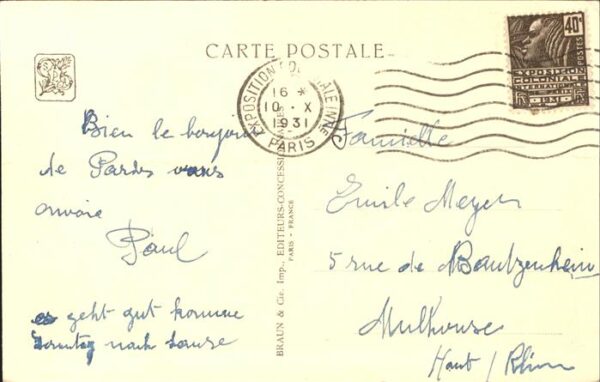 CARTE POSTALE
40c
POSTES
EXPOSITION
COLONIALE
INTERNATIONALE
PARIS 1931
EXPOSITION COLONIALE INNE
16 *
10 · X
1931
PARIS
BRAUN & Cie, Imp., EDITEURS-CONCESSIONNAIRES
PARIS - FRANCE
Bien le bonjour
de Pardes vous
anvoie
Paul
es geht gut komme
Sonntag nach hause
Famille
Emile Meyer
5 rue de Bantzenheim
Mulhouse
Haut / Rhin